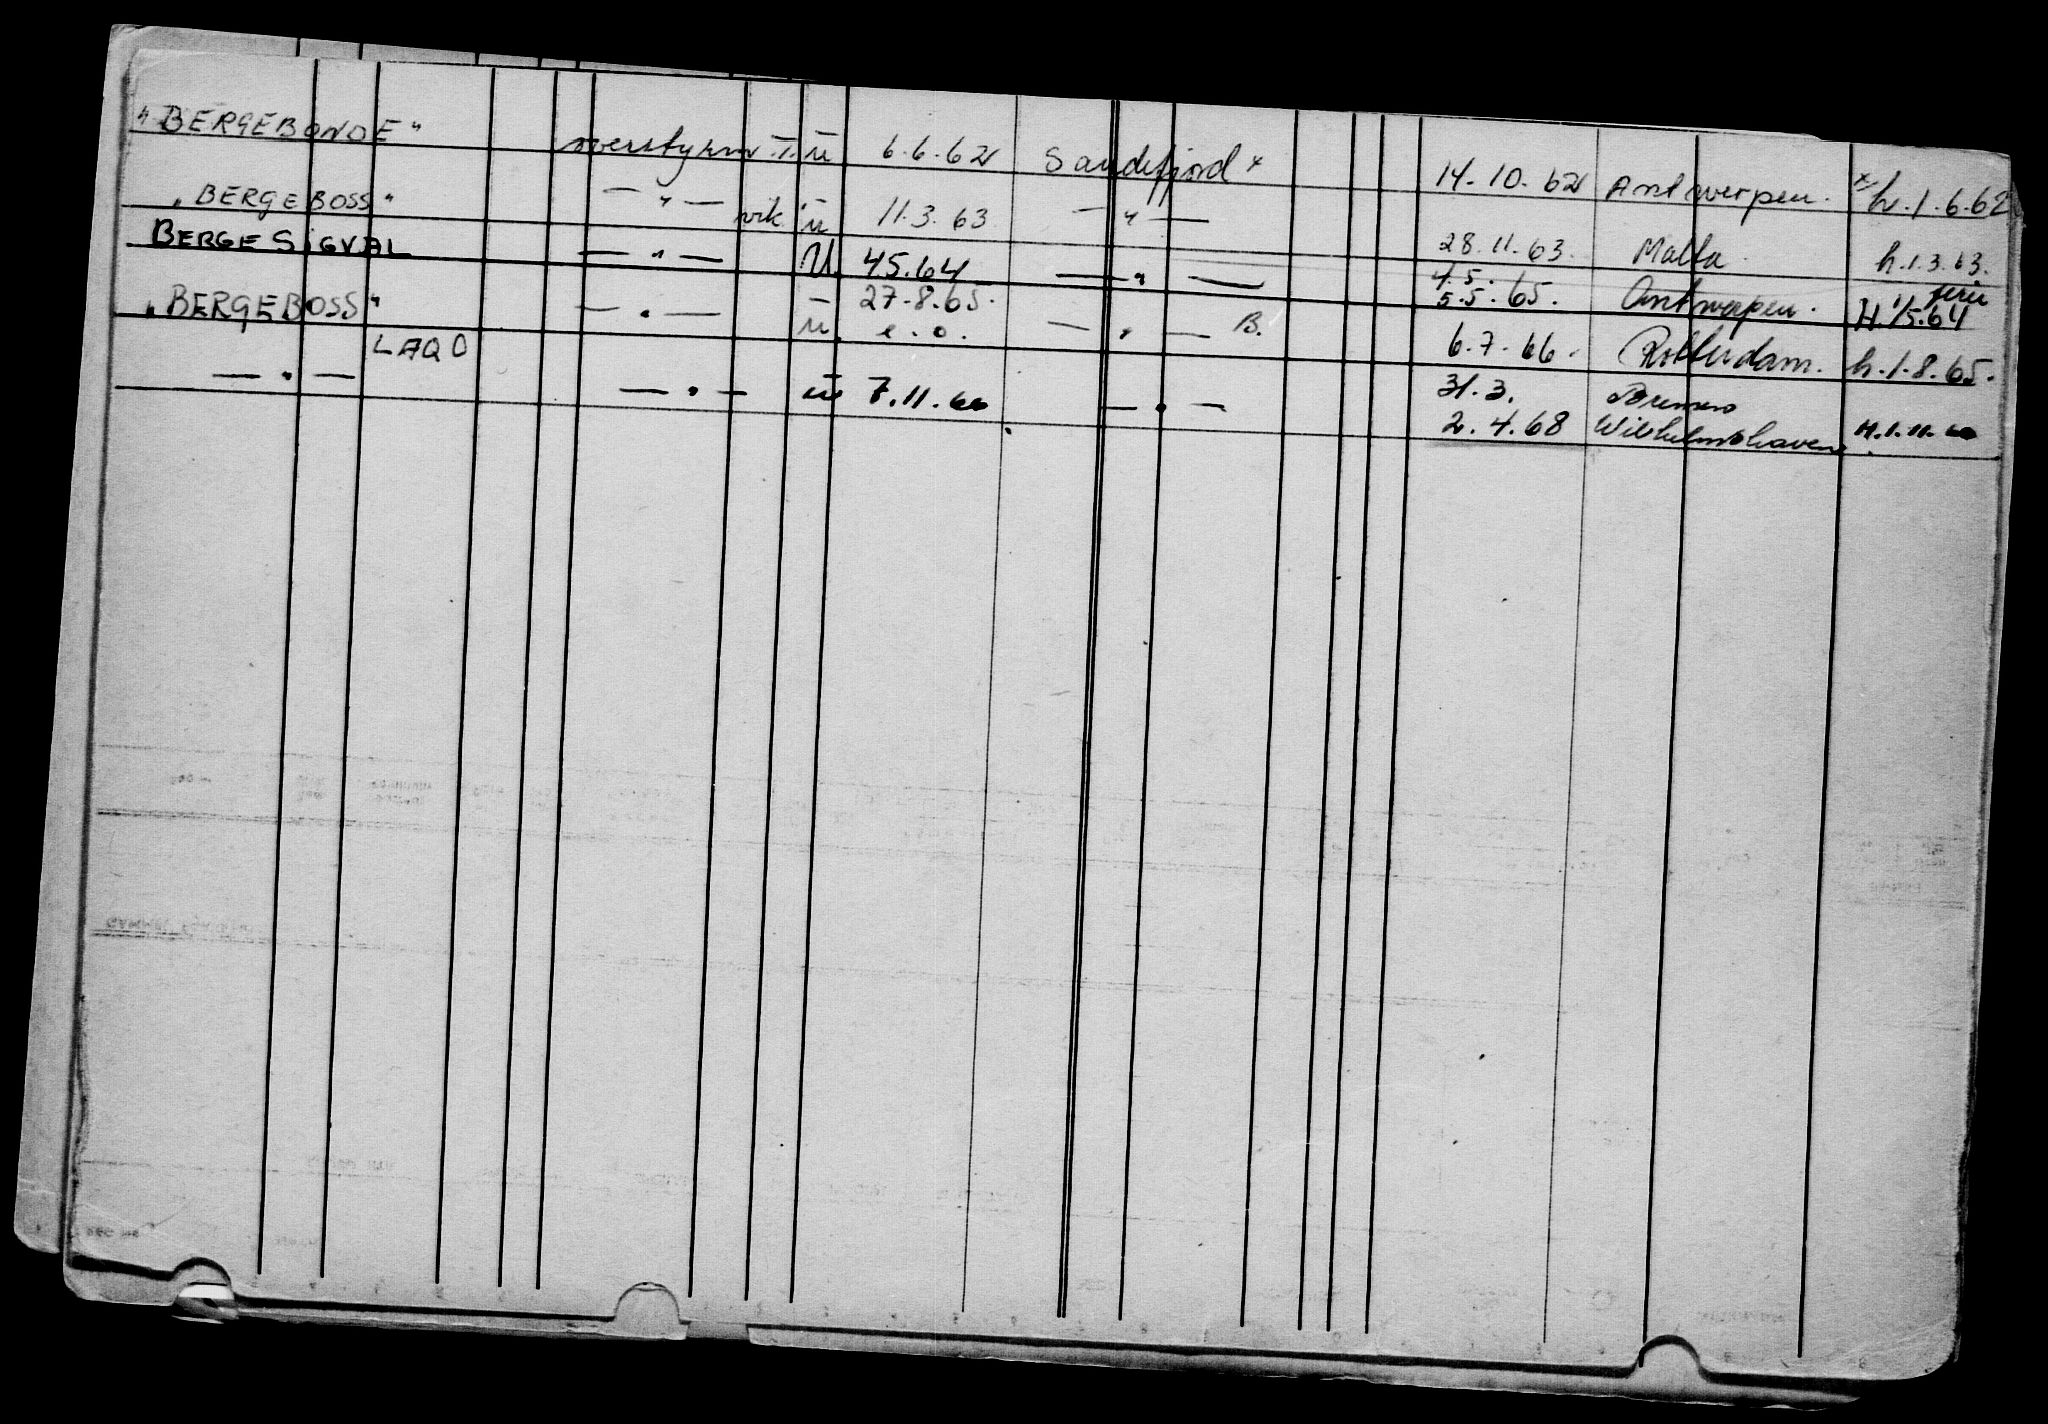 "BERGEBONDE" overstyrm. I. ū 6.6.62 Sandefjord x 14.10.62 Antwerpen. x h.1.6.62
"BERGEBOSS" — " — vik. ū 11.3.63 — " — 28.11.63. Malta. h.1.3.63.
BERGE SIGVAL — " — U. 4.5.64 — " — 4.5. 5.5.65. Antwerpen. ferie H.1/5.64
"BERGEBOSS" — " — ū. 27.8.65. e.o. — " — B. 6.7.66. Rotterdam. h.1.8.65.
LAQO
— " — — " — ū 7.11.66 — " — 31.3. Bremen
2.4.68 Wilhelmshaven. H.1.11.66